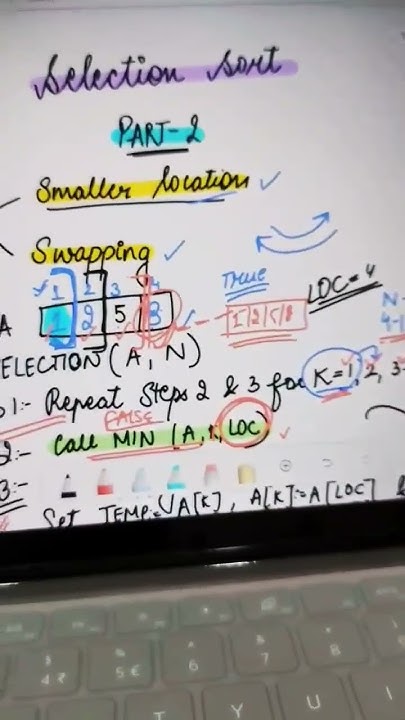 Selection Sort
PART-2
Smaller location
Swapping
TRUE
LOC=4
1 2 3 4
A 1 2 5 8
1/2/5/8
N-
4-1
ELECTION (A, N)
1:- Repeat Steps 2 & 3 for K=1, 2, 3-
FALSE
2:- Call MIN (A, K, LOC)
3:-
Set TEMP:=A[K], A[K]:=A[LOC] &
4 ₹
5 €
6
7
8
T Y U I